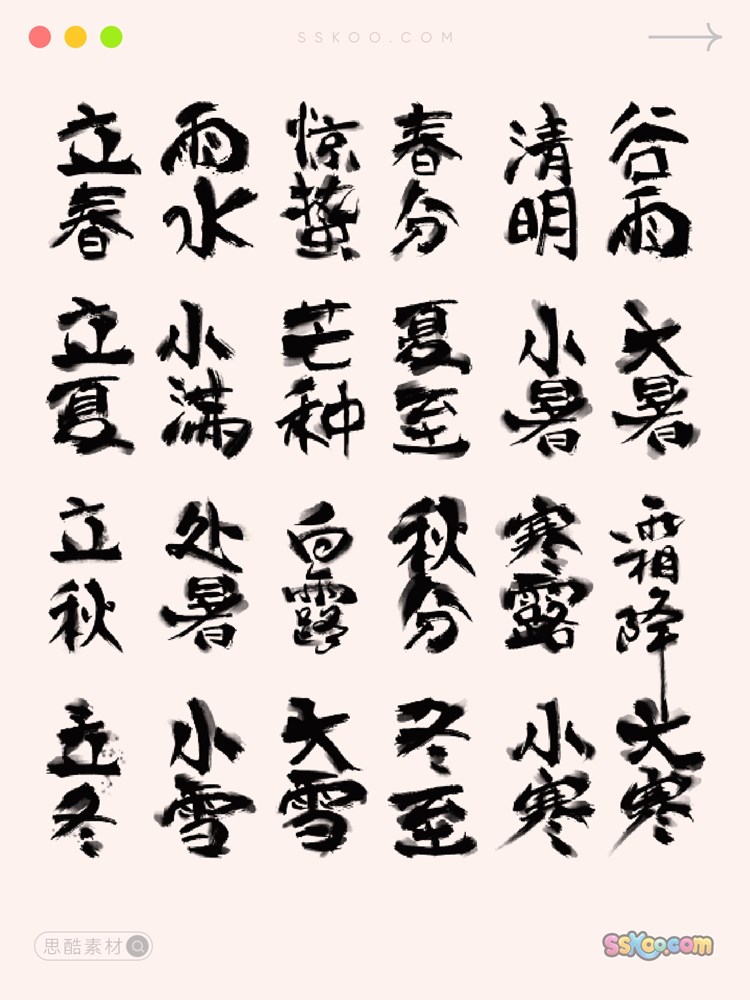 SSKOO.COM
立春 雨水 惊蛰 春分 清明 谷雨
立夏 小满 芒种 夏至 小暑 大暑
立秋 处暑 白露 秋分 寒露 霜降
立冬 小雪 大雪 冬至 小寒 大寒
思酷素材
sskoo.com